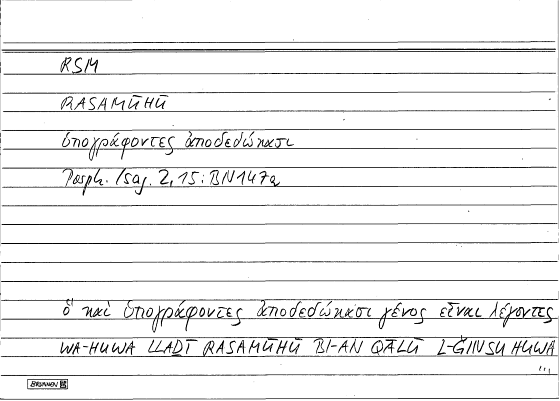 RSM
RASAMŪHŪ
ὑπογράφοντες ἀποδεδώκασι
Porph. Isag. 2,15: BN147a
ὃ καὶ ὑπογράφοντες ἀποδεδώκασι γένος εἶναι λέγοντες
WA-HUWA LLAḎĪ RASAMŪHŪ BI-AN QĀLŪ L-ǦINSU HUWA
...
BRUNNEN